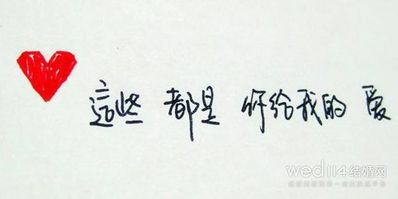 這些 都是 你给我的 爱
wed114结婚网